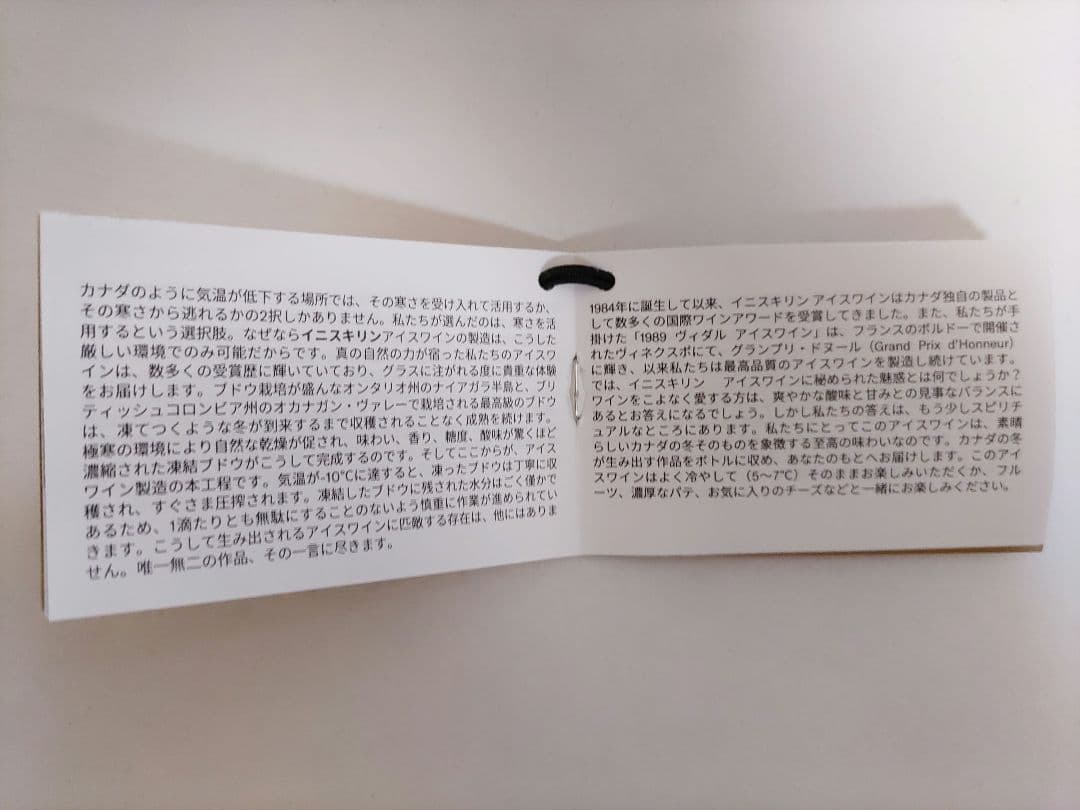 カナダのように気温が低下する場所では、その寒さを受け入れて活用するか、
その寒さから逃れるかの2択しかありません。私たちが選んだのは、寒さを活
用するという選択肢。なぜならイニスキリンアイスワインの製造は、こうした
厳しい環境でのみ可能だからです。真の自然の力が宿った私たちのアイスワ
インは、数多くの受賞歴に輝いていており、グラスに注がれる度に貴重な体験
をお届けします。ブドウ栽培が盛んなオンタリオ州のナイアガラ半島と、ブリ
ティッシュコロンビア州のオカナガン・ヴァレーで栽培される最高級のブドウ
は、凍てつくような冬が到来するまで収穫されることなく成熟を続けます。
極寒の環境により自然な乾燥が促され、味わい、香り、糖度、酸味が驚くほど
濃縮された凍結ブドウがこうして完成するのです。そしてここからが、アイス
ワイン製造の本工程です。気温が-10℃に達すると、凍ったブドウは丁寧に収
穫され、すぐさま圧搾されます。凍結したブドウに残された水分はごく僅かで
あるため、1滴たりとも無駄にすることのないよう慎重に作業が進められてい
きます。こうして生み出されるアイスワインに匹敵する存在は、他にはありま
せん。唯一無二の作品、その一言に尽きます。
1984年に誕生して以来、イニスキリン アイスワインはカナダ独自の製品と
して数多くの国際ワインアワードを受賞してきました。また、私たちが手
掛けた「1989 ヴィダル アイスワイン」は、フランスのボルドーで開催さ
れたヴィネクスポにて、グランプリ・ドヌール（Grand Prix d'Honneur）
に輝き、以来私たちは最高品質のアイスワインを製造し続けています。
では、イニスキリン アイスワインに秘められた魅惑とは何でしょうか？
ワインをこよなく愛する方は、爽やかな酸味と甘みとの見事なバランスに
あるとお答えになるでしょう。しかし私たちの答えは、もう少しスピリチ
ュアルなところにあります。私たちにとってこのアイスワインは、素晴
らしいカナダの冬そのものを象徴する至高の味わいなのです。カナダの冬
が生み出す作品をボトルに収め、あなたのもとへお届けします。このアイ
スワインはよく冷やして（5〜7℃）そのままお楽しみいただくか、フル
ーツ、濃厚なパテ、お気に入りのチーズなどと一緒にお楽しみください。